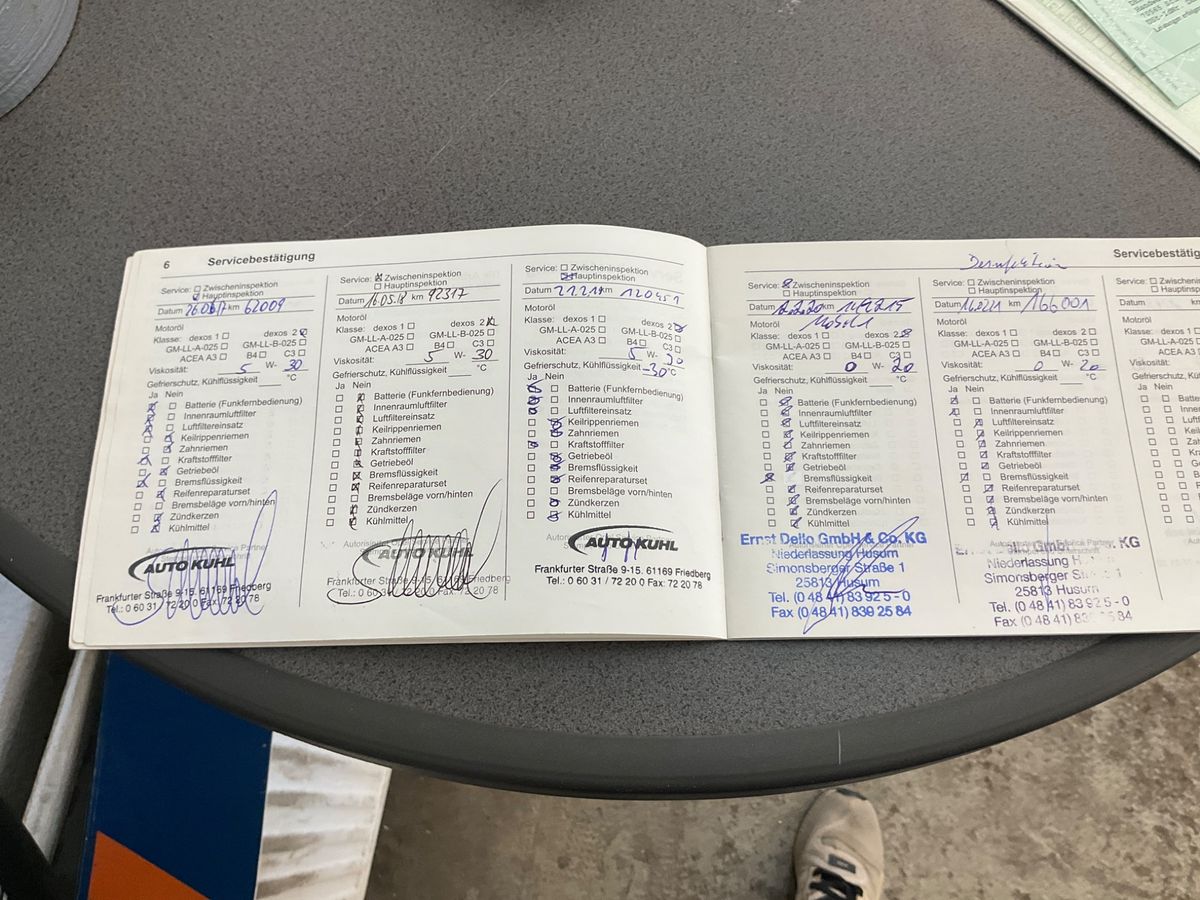 6 Servicebestätigung
Service: Zwischeninspektion
Hauptinspektion
Datum km 62009
Motoröl
Klasse: dexos 1 dexos 2
GM-LL-A-025 GM-LL-B-025
ACEA A3 B4 C3
Viskosität: 5 W- 30
Gefrierschutz, Kühlflüssigkeit °C
Ja Nein
Batterie (Funkfernbedienung)
Innenraumluftfilter
Luftfiltereinsatz
Keilrippenriemen
Zahnriemen
Kraftstofffilter
Getriebeöl
Bremsflüssigkeit
Reifenreparaturset
Bremsbeläge vorn/hinten
Zündkerzen
Kühlmittel
AUTO KUHL
Frankfurter Straße 9-15. 61169 Friedberg
Tel.: 0 60 31 / 72 20 0 Fax: 72 20 78
Service: Zwischeninspektion
Hauptinspektion
Datum 16.05.18 km 92317
Motoröl
Klasse: dexos 1 dexos 2
GM-LL-A-025 GM-LL-B-025
ACEA A3 B4 C3
Viskosität: 5 W- 30
Gefrierschutz, Kühlflüssigkeit °C
Ja Nein
Batterie (Funkfernbedienung)
Innenraumluftfilter
Luftfiltereinsatz
Keilrippenriemen
Zahnriemen
Kraftstofffilter
Getriebeöl
Bremsflüssigkeit
Reifenreparaturset
Bremsbeläge vorn/hinten
Zündkerzen
Kühlmittel
AUTO KUHL
Frankfurter Straße 9-15. 61169 Friedberg
Tel.: 0 60 31 / 72 20 0 Fax: 72 20 78
Service: Zwischeninspektion
Hauptinspektion
Datum km 120451
Motoröl
Klasse: dexos 1 dexos 2
GM-LL-A-025 GM-LL-B-025
ACEA A3 B4 C3
Viskosität: 5 W- 30
Gefrierschutz, Kühlflüssigkeit -30°C
Ja Nein
Batterie (Funkfernbedienung)
Innenraumluftfilter
Luftfiltereinsatz
Keilrippenriemen
Zahnriemen
Kraftstofffilter
Getriebeöl
Bremsflüssigkeit
Reifenreparaturset
Bremsbeläge vorn/hinten
Zündkerzen
Kühlmittel
AUTO KUHL
Frankfurter Straße 9-15. 61169 Friedberg
Tel.: 0 60 31 / 72 20 0 Fax: 72 20 78
Service: Zwischeninspektion
Hauptinspektion
Datum km
Motoröl
Klasse: dexos 1 dexos 2
GM-LL-A-025 GM-LL-B-025
ACEA A3 B4 C3
Viskosität: 0 W- 20
Gefrierschutz, Kühlflüssigkeit °C
Ja Nein
Batterie (Funkfernbedienung)
Innenraumluftfilter
Luftfiltereinsatz
Keilrippenriemen
Zahnriemen
Kraftstofffilter
Getriebeöl
Bremsflüssigkeit
Reifenreparaturset
Bremsbeläge vorn/hinten
Zündkerzen
Kühlmittel
Ernst Dello GmbH & Co. KG
Niederlassung Husum
Simonsberger Straße 1
25813 Husum
Tel. (0 48 41) 83 92 5 - 0
Fax (0 48 41) 839 25 84
Service: Zwischeninspektion
Hauptinspektion
Datum km 166001
Motoröl
Klasse: dexos 1 dexos 2
GM-LL-A-025 GM-LL-B-025
ACEA A3 B4 C3
Viskosität: 0 W- 20
Gefrierschutz, Kühlflüssigkeit °C
Ja Nein
Batterie (Funkfernbedienung)
Innenraumluftfilter
Luftfiltereinsatz
Keilrippenriemen
Zahnriemen
Kraftstofffilter
Getriebeöl
Bremsflüssigkeit
Reifenreparaturset
Bremsbeläge vorn/hinten
Zündkerzen
Kühlmittel
KG
Niederlassung
Simonsberger
25813 Husum
Tel. (0 48 41) 83 92 5 - 0
Fax (0 48 41) 84